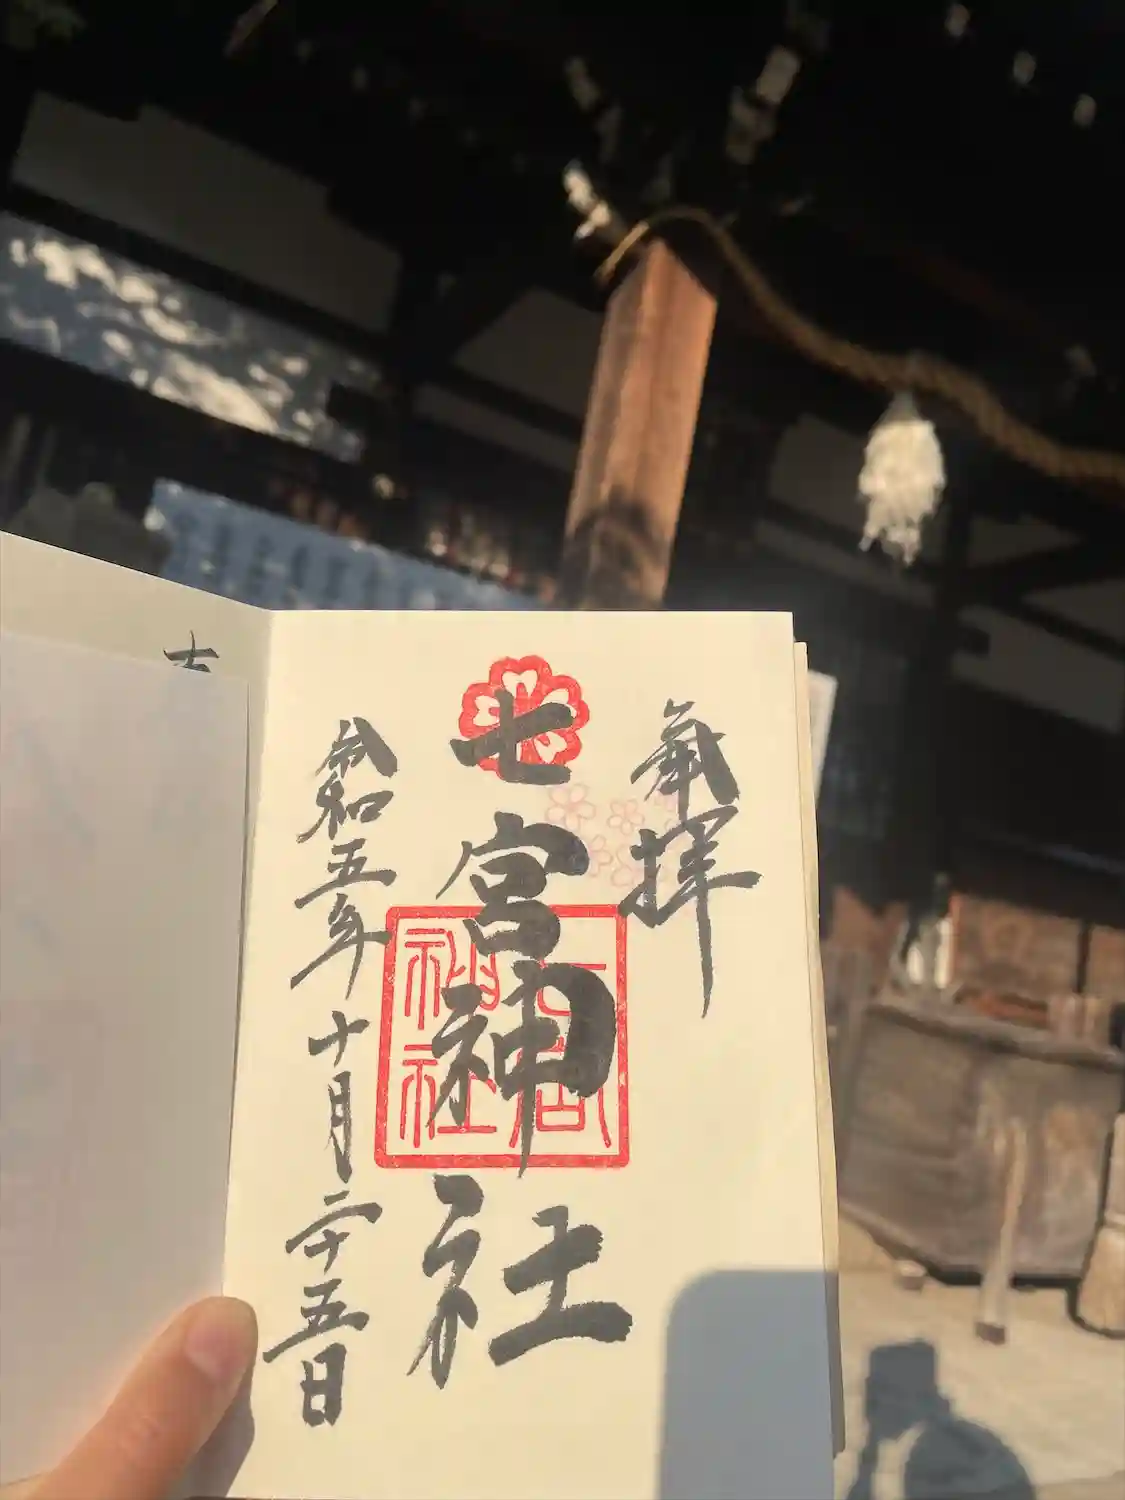 奉拝
七宮神社
七宮
神社
令和五年十月二十五日